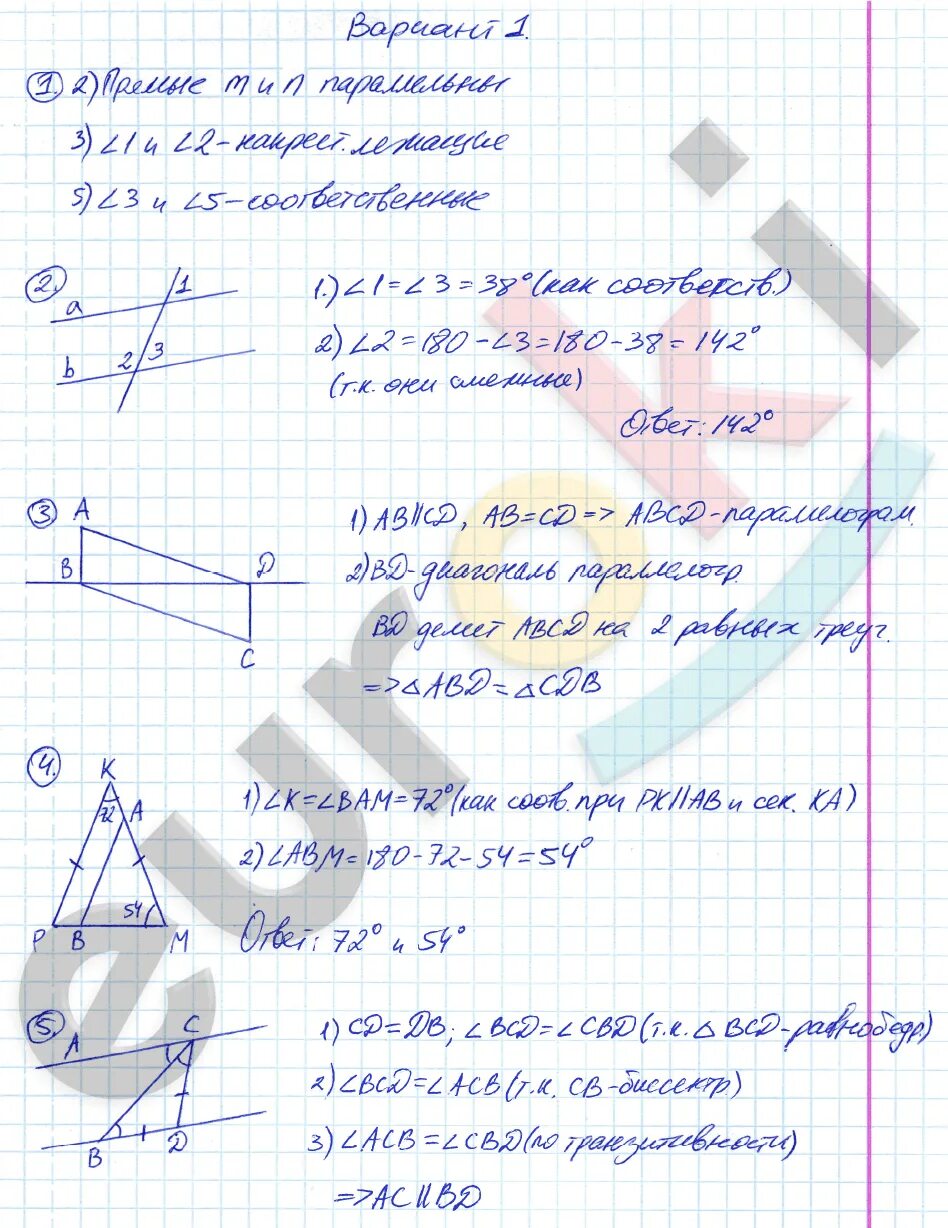 Вариант 1.
1. 2) Прямые m и n параллельны
3) ∠1 и ∠2 - накрест. лежащие
5) ∠3 и ∠5 - соответственные
2.
a
1
b
2
3
1.) ∠1 = ∠3 = 38° (как соотверств.)
2) ∠2 = 180 - ∠3 = 180 - 38 = 142°
(т.к. они смежные)
Ответ: 142°
3
A
B
D
C
1) AB||CD, AB = CD => ABCD - параллелограм.
2) BD - диагональ параллелогр.
BD делит ABCD на 2 равных треуг.
=> △ABD = △CDB
4.
K
72
A
54
P
B
M
1) ∠K = ∠BAM = 72° (как соотв. при PK||AB и сек. KA)
2) ∠ABM = 180 - 72 - 54 = 54°
Ответ: 72° и 54°
5.
A
C
B
D
1) CD = DB; ∠BCD = ∠CBD (т.к. △BCD - равнобедр)
2) ∠BCD = ∠ACB (т.к. CB - биссектр)
3) ∠ACB = ∠CBD (по транзитивности)
=> AC||BD
euroki